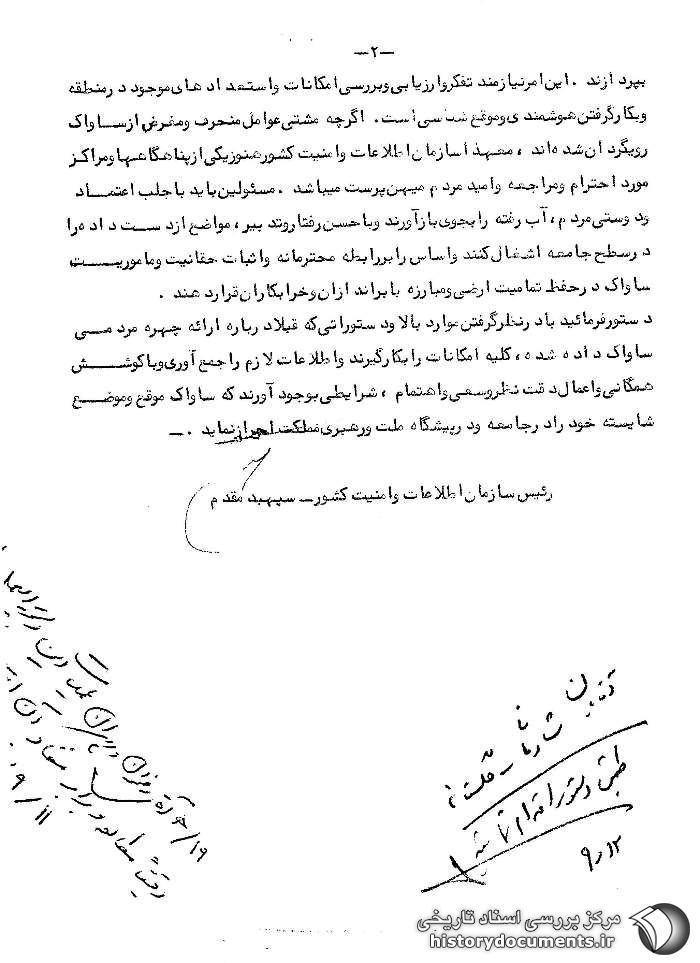 —۲—
بپردازند . این امر نیازمند تفکر و ارزیابی و بررسی امکانات و استعدادهای موجود در منطقه
و بکار گرفتن هوشمندی و موقع شناسی است . اگرچه مشتی عوامل منحرف و مغرض از ساواک
رویگردان شده اند ، معهذا سازمان اطلاعات و امنیت کشور هنوز یکی از پناهگاهها و مراکز
مورد احترام و مراجعه و امید مردم میهن پرست میباشد . مسئولین باید با جلب اعتماد
و دوستی مردم ، آب رفته را بجوی باز آورند و با حسن رفتار و تدبیر ، مواضع از دست داده را
در سطح جامعه اشغال کنند و اساس را بر رابطه محترمانه و اثبات حقانیت و ماموریت
ساواک در حفظ تمامیت ارضی و مبارزه با براندازان و خرابکاران قرار دهند .
دستور فرمائید با در نظر گرفتن موارد بالا و دستوراتی که قبلا درباره ارائه چهره مردمی
ساواک داده شده ، کلیه امکانات را بکار گیرند و اطلاعات لازم را جمع آوری و با کوشش
همگانی و اعمال دقت نظر و سعی و اهتمام ، شرایطی بوجود آورند که ساواک موقع و موضع
شایسته خود را در جامعه و در پیشگاه ملت و رهبری مملکت احراز نماید . —
رئیس سازمان اطلاعات و امنیت کشور — سپهبد مقدم
طبق دستور اقدام
۹/۱۲
۹/۱۱
مرکز بررسی اسناد تاریخی
historydocuments.ir